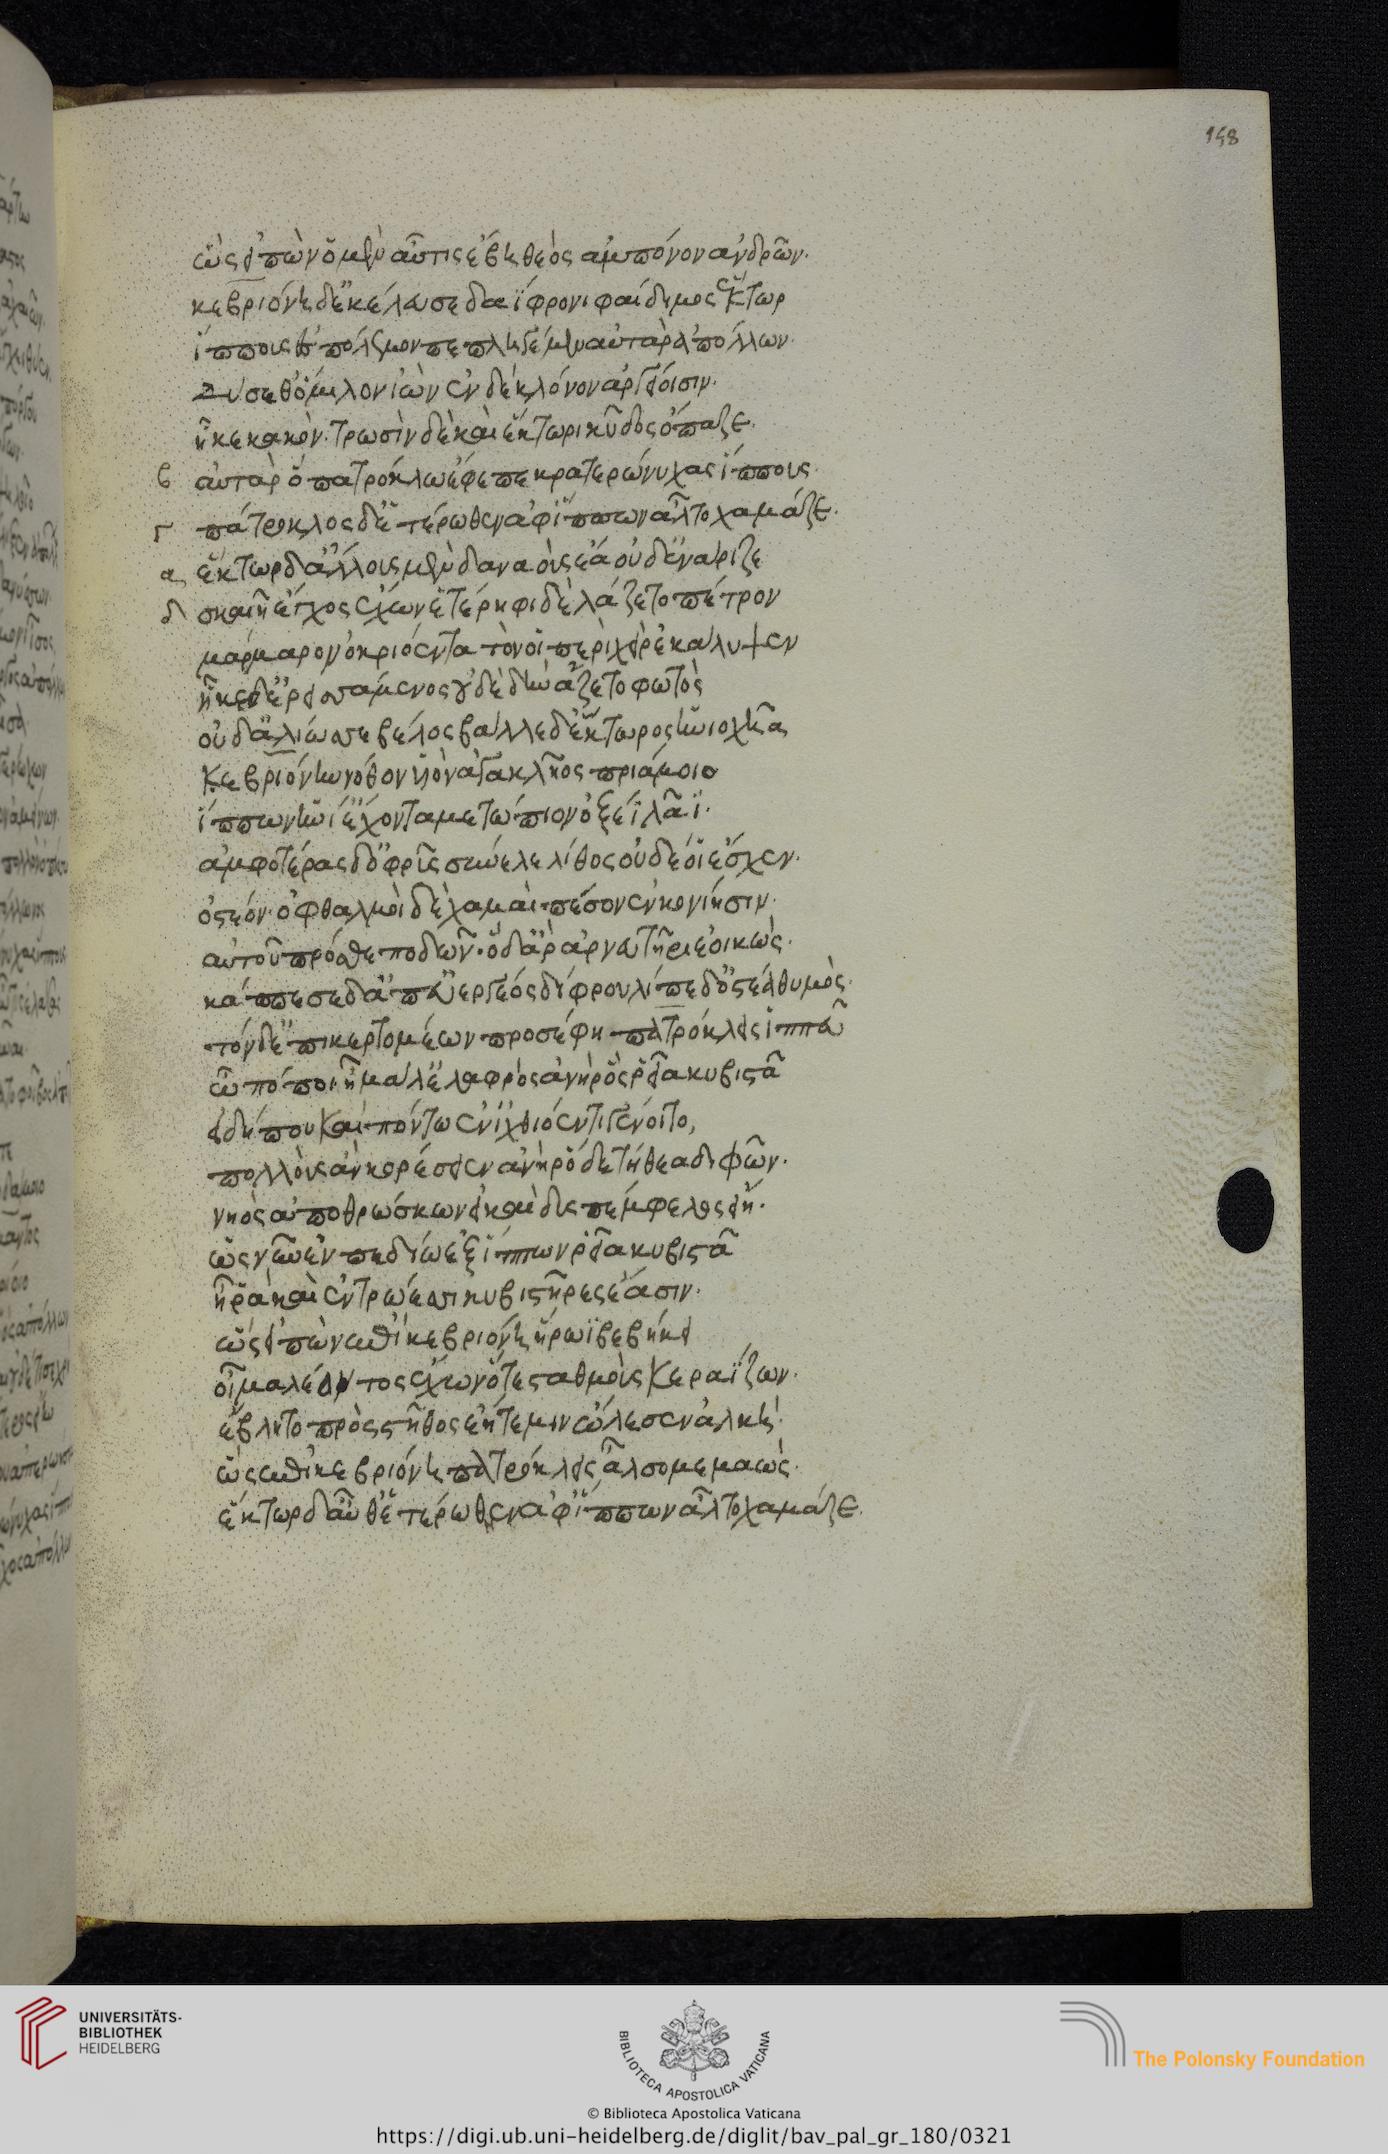 158
ὣς εἰπὼν ὃ μὲν αὖτις ἔβη θεὸς ἀμπόνον ἀνδρῶν.
κεβριόνῃ δ' ἐκέλευσε δαΐφρονι φαίδιμος ἕκτωρ
ἵππους ἐς πόλεμον πεπληγέμεν αὐτὰρ ἀπόλλων.
δύσεθ' ὅμιλον ἰὼν ἐν δὲ κλόνον ἀργείοισιν.
ἧκε κακὸν. τρωσὶν δὲ καὶ ἕκτορι κῦδος ὄπαζε.
β αὐτὰρ ὃ πατρόκλω ἔφεπε κρατερώνυχας ἵππους.
γ πάτροκλος δ' ἑτέρωθεν ἀφ' ἵππων ἆλτο χαμάζε.
α ἕκτωρ δ' ἄλλους μὲν δαναοὺς ἔα οὐδ' ἐνάριζε
δ σκαιῇ ἔγχος ἔχων ἑτέρηφι δὲ λάζετο πέτρον
μάρμαρον ὀκριόεντα τόν οἱ περὶ χεὶρ ἐκάλυψεν
ἧκε δ' ἐρεισάμενος οὐδὲ δὴν ἅζετο φωτὸς
οὐδ' ἁλίωσε βέλος βάλλε δ' ἕκτορος ἡνιοχῆα
κεβριόνην νόθον υἱὸν ἀγακλῆος πριάμοιο
ἵππων ἡνί' ἔχοντα μετώπιον ὀξέϊ λᾶϊ.
ἀμφοτέρας δ' ὀφρῦς σύνελε λίθος οὐδέ οἱ ἔσχεν.
ὀστέον. ὀφθαλμοὶ δὲ χαμαὶ πέσον ἐν κονίησιν.
αὐτοῦ πρόσθε ποδῶν. ὃ δ' ἄρ' ἀρνευτῆρι ἐοικὼς.
κάππεσε δ' ἀπ' εὐεργέος δίφρου λίπε δ' ὀστέα θυμὸς.
τὸν δ' ἐπικερτομέων προσέφη πατρόκλεις ἱππεῦ
ὢ πόποι ἦ μάλ' ἐλαφρὸς ἀνὴρ ὃς ῥεῖα κυβιστᾶ
εἰ δή που καὶ πόντω ἐν ἰχθυόεντι γένοιτο,
πολλοὺς ἂν κορέσειεν ἀνὴρ ὅδε τήθεα διφῶν.
νηὸς ἀποθρώσκων εἰ καὶ δυσπέμφελος εἴη.
ὡς νῦν ἐν πεδίω ἐξ ἵππων ῥεῖα κυβιστᾶ
ἦ ῥα καὶ ἐν τρώεσσι κυβιστῆρες ἔασιν.
ὣς εἰπὼν ἐπὶ κεβριόνη ἥρωϊ βεβήκει
οἶμα λέοντος ἔχων ὅς τε σταθμοὺς κεραΐζων.
ἔβλητο πρὸς στῆθος ἑή τέ μιν ὤλεσεν ἀλκή.
ὣς ἐπὶ κεβριόνη πατρόκλεις ἆλσο μεμαὼς.
ἕκτωρ δ' αὖθ' ἑτέρωθεν ἀφ' ἵππων ἆλτο χαμάζε.
UNIVERSITÄTS-
BIBLIOTHEK
HEIDELBERG
BIBLIOTECA APOSTOLICA VATICANA
The Polonsky Foundation
© Biblioteca Apostolica Vaticana
https://digi.ub.uni-heidelberg.de/diglit/bav_pal_gr_180/0321